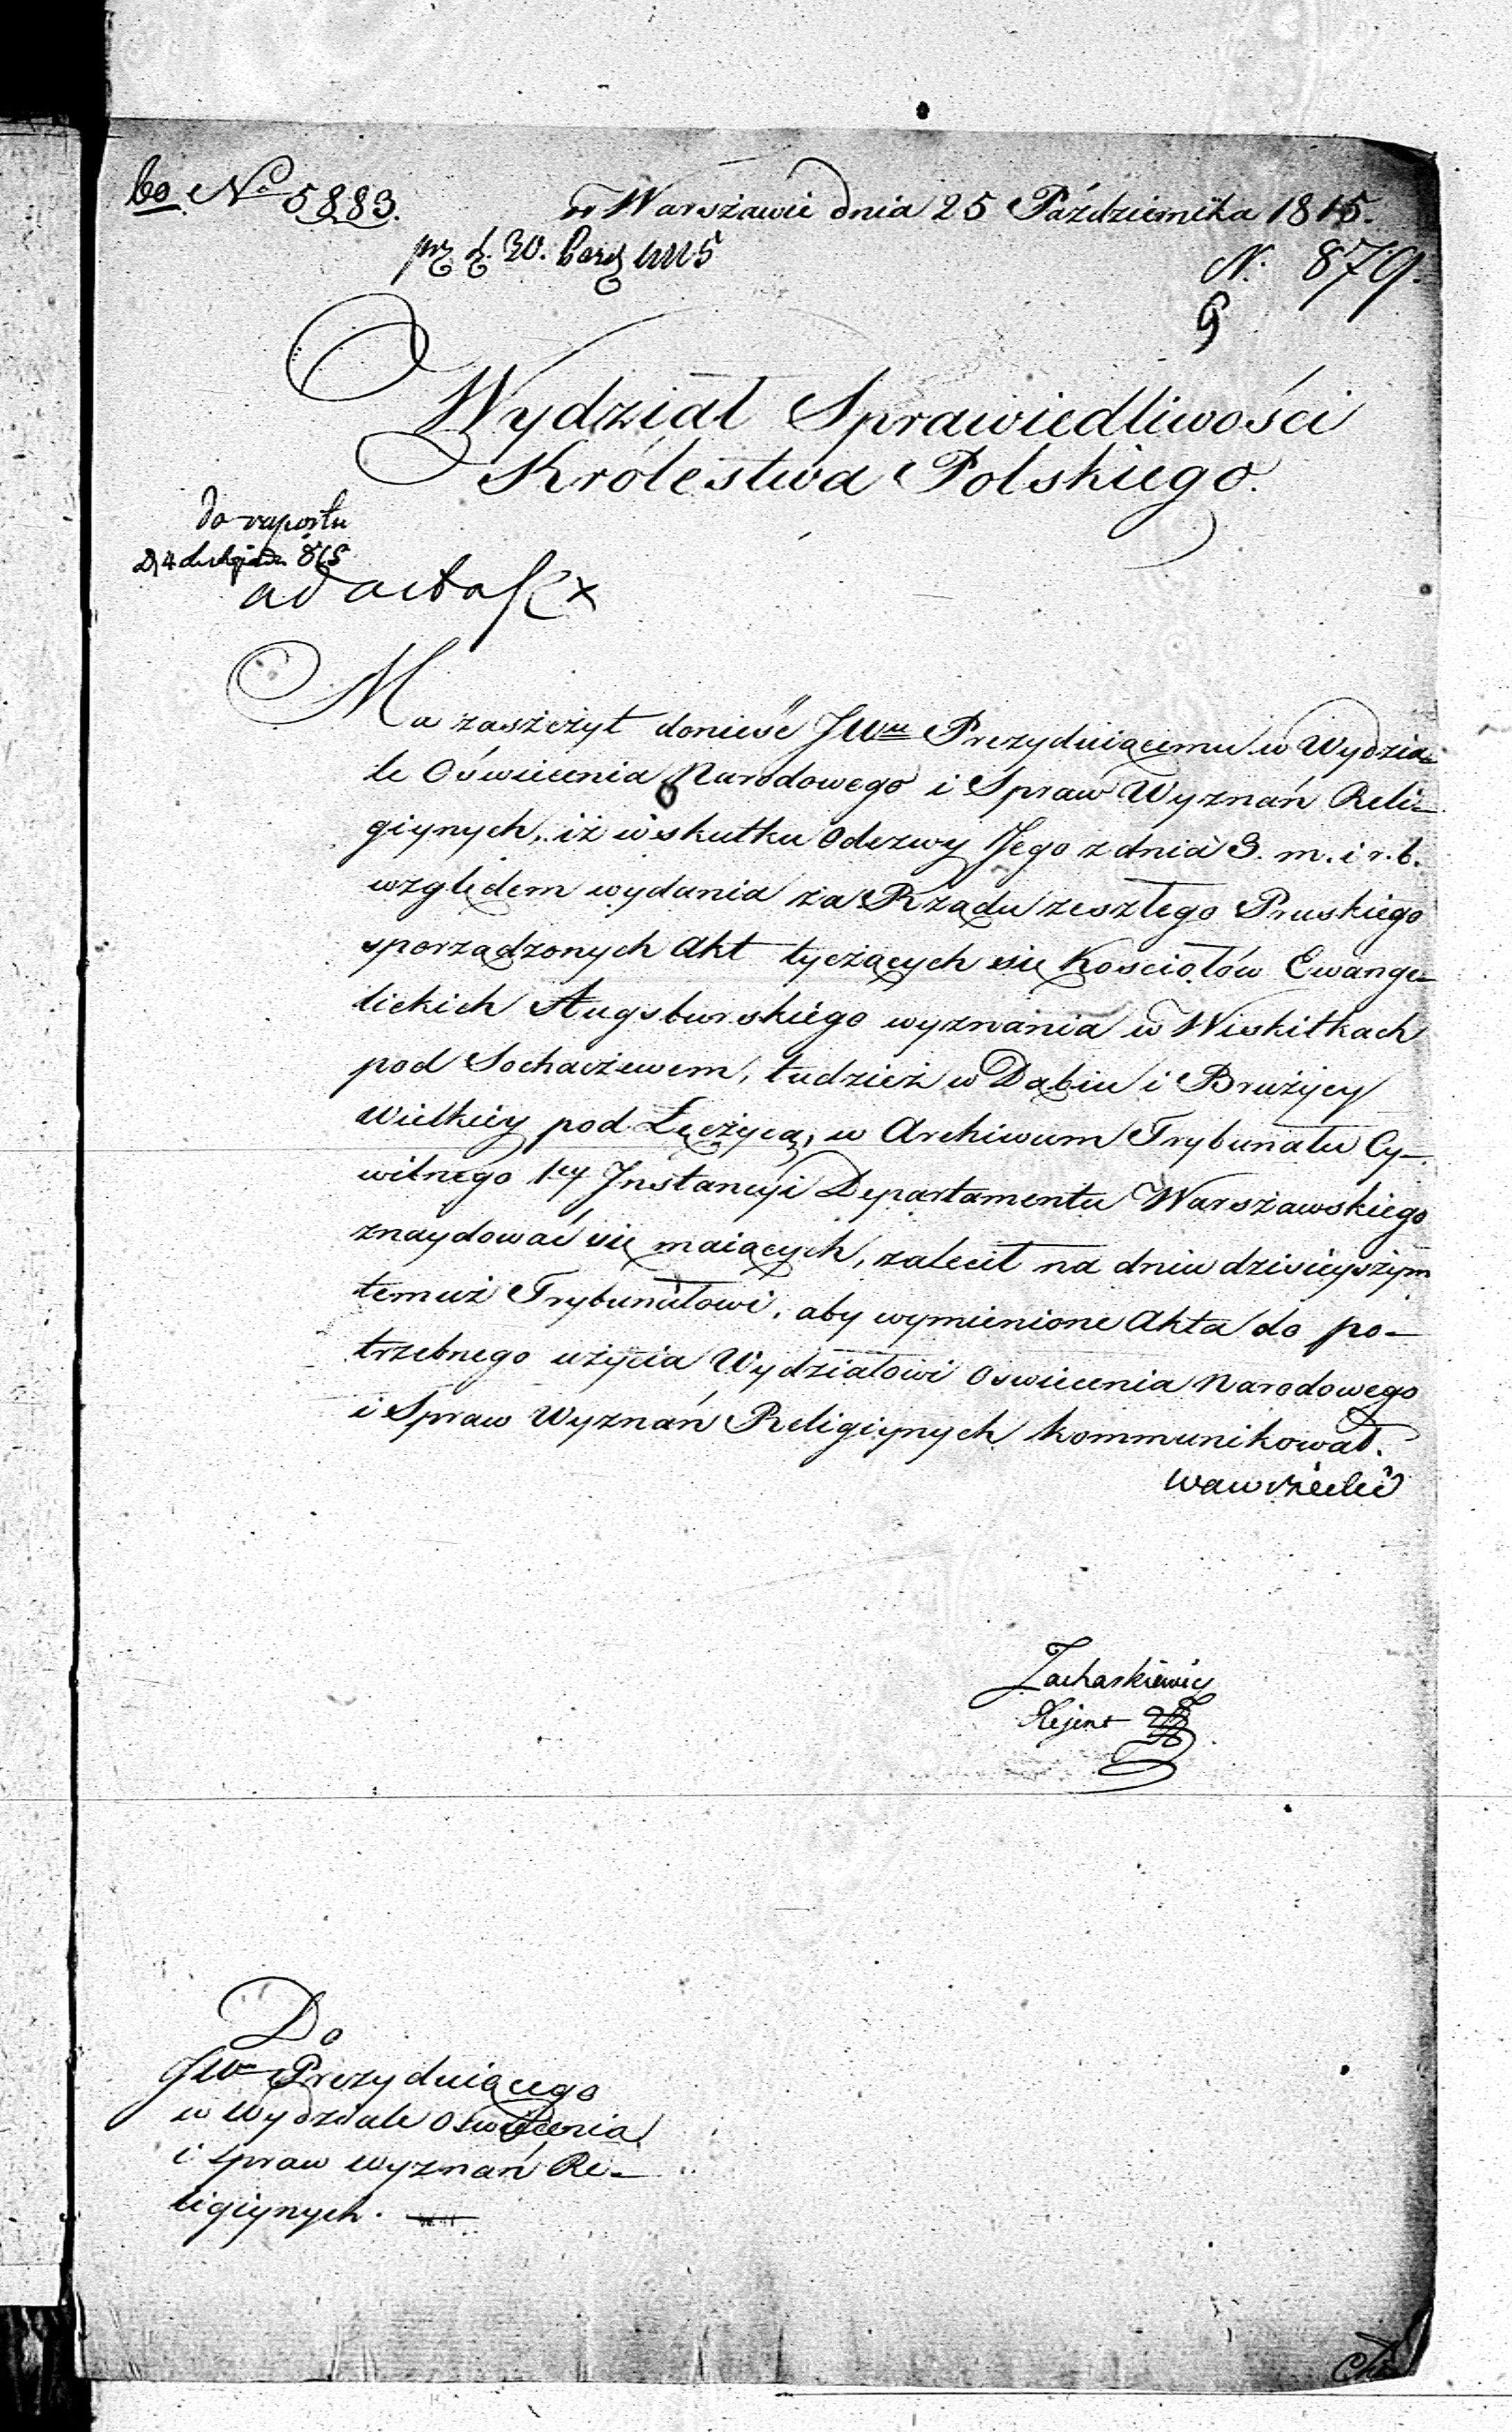 No 5883.
w Warszawie dnia 25 Października 1815.
N. 879.
9
Wydział Sprawiedliwości
Królestwa Polskiego.
do raportu
ad acta
Ma zaszczyt donieść JWmu Prezyduiącemu w Wydzia-
le Oświecenia Narodowego i Spraw Wyznań Reli-
giynych, iż w skutku Odezwy Jego z dnia 3. m. i r. b.
względem wydania za Rządu zeszłego Pruskiego
sporządzonych Akt tyczących się Kościołów Ewange-
lickich Augsburskiego wyznania w Wiskitkach
pod Sochaczewem, tudzież w Dąbiu i Brużycy
Wielkiey pod Łęczycą, w Archiwum Trybunału Cy-
wilnego 1ey Jnstancyi Departamentu Warszawskiego
znaydować się maiących, zalecił na dniu dzisieyszym
temuż Trybunałowi, aby wymienione Akta do po-
trzebnego użycia Wydziałowi Oswiecenia Narodowego
i Spraw Wyznań Religiynych kommunikował.
Wawrzecki
Zacharkiewicz
Rejent
Do
JWo Prezyduiącego
w Wydziale Oswiecenia
i Spraw Wyznań Re-
ligiynych.